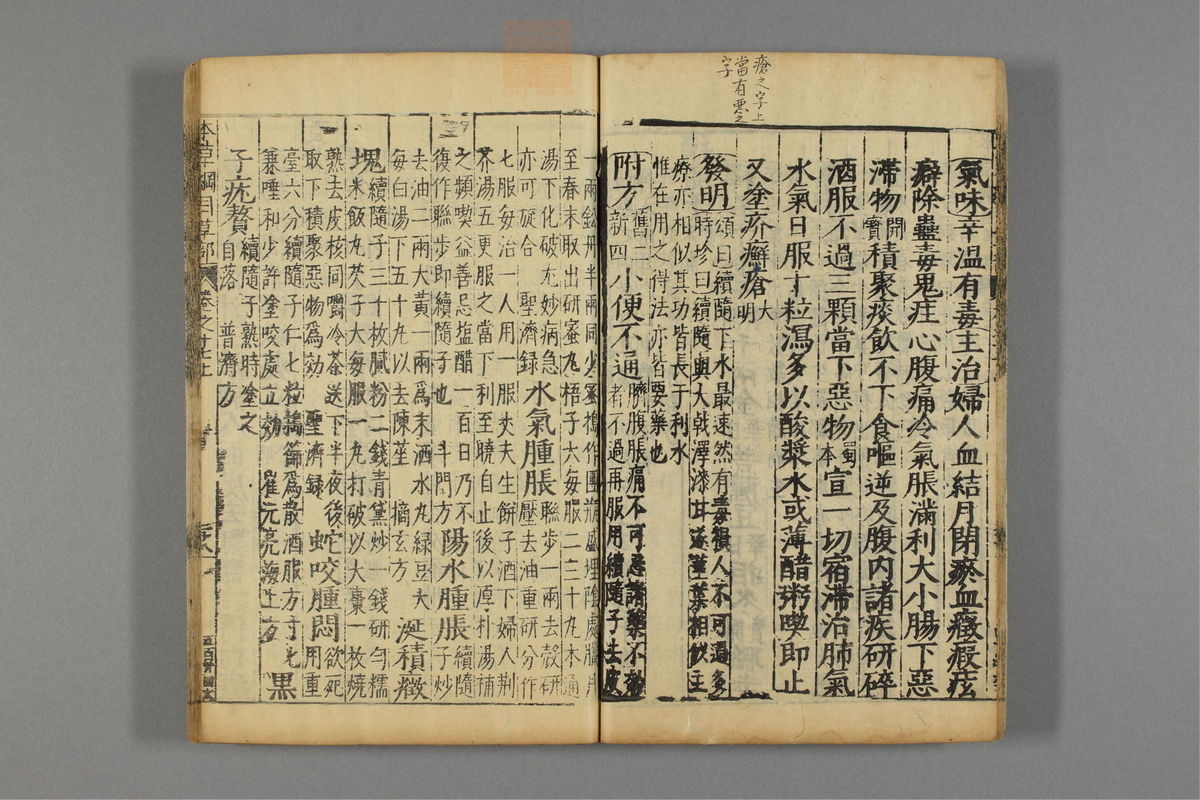 瘡之字上
當有惡之
字
氣味辛温有毒主治婦人血結月閉瘀血癥瘕痃
癖除蠱毒鬼疰心腹痛冷氣脹滿利大小腸下惡
滯物開寶積聚痰飲不下食嘔逆及腹內諸疾研碎
酒服不過三顆當下惡物蜀本宣一切宿滯治肺氣
水氣日服十粒瀉多以酸漿水或薄醋粥喫即止
又塗疥癬瘡大明
發明頌曰續隨下水最速然有毒損人不可過多時珍曰續隨與大戟澤漆甘遂莖葉相似主
療亦相似其功皆長于利水惟在用之得法亦皆要藥也
附方舊二新四小便不通臍腹脹痛不可忍諸藥不效者不過再服用續隨子去皮
一兩鉛丹半兩同少蜜搗作團瓶盛埋陰處臘月
至春末取出研蜜丸梧子大每服二三十丸木通
湯下化破尤妙病急亦可旋合 聖濟錄 水氣腫脹聯步一兩去殼研壓去油重研分作
七服每治一人用一服丈夫生餅子酒下婦人荊
芥湯五更服之當下利至曉自止後以厚朴湯補
之頻喫益善忌塩醋一百日乃不復作聯步即續隨子也 斗門方 陽水腫脹續隨子炒
去油二兩大黃一兩爲末酒水丸綠豆大
每白湯下五十丸以去陳莝 摘玄方 涎積癥
塊續隨子三十枚膩粉二錢青黛炒一錢研勻糯米飯丸芡子大每服一丸打破以大棗一枚燒
熟去皮核同嚼冷茶送下半夜後取下積聚惡物爲効 聖濟錄 蛇咬腫悶欲死用重
臺六分續隨子仁七粒擣篩爲散酒服方寸匕
兼唾和少許塗咬處立効 崔元亮海上方 黑
子疣贅續隨子熟時塗之自落 普濟方
本草綱目草部 卷之十七上